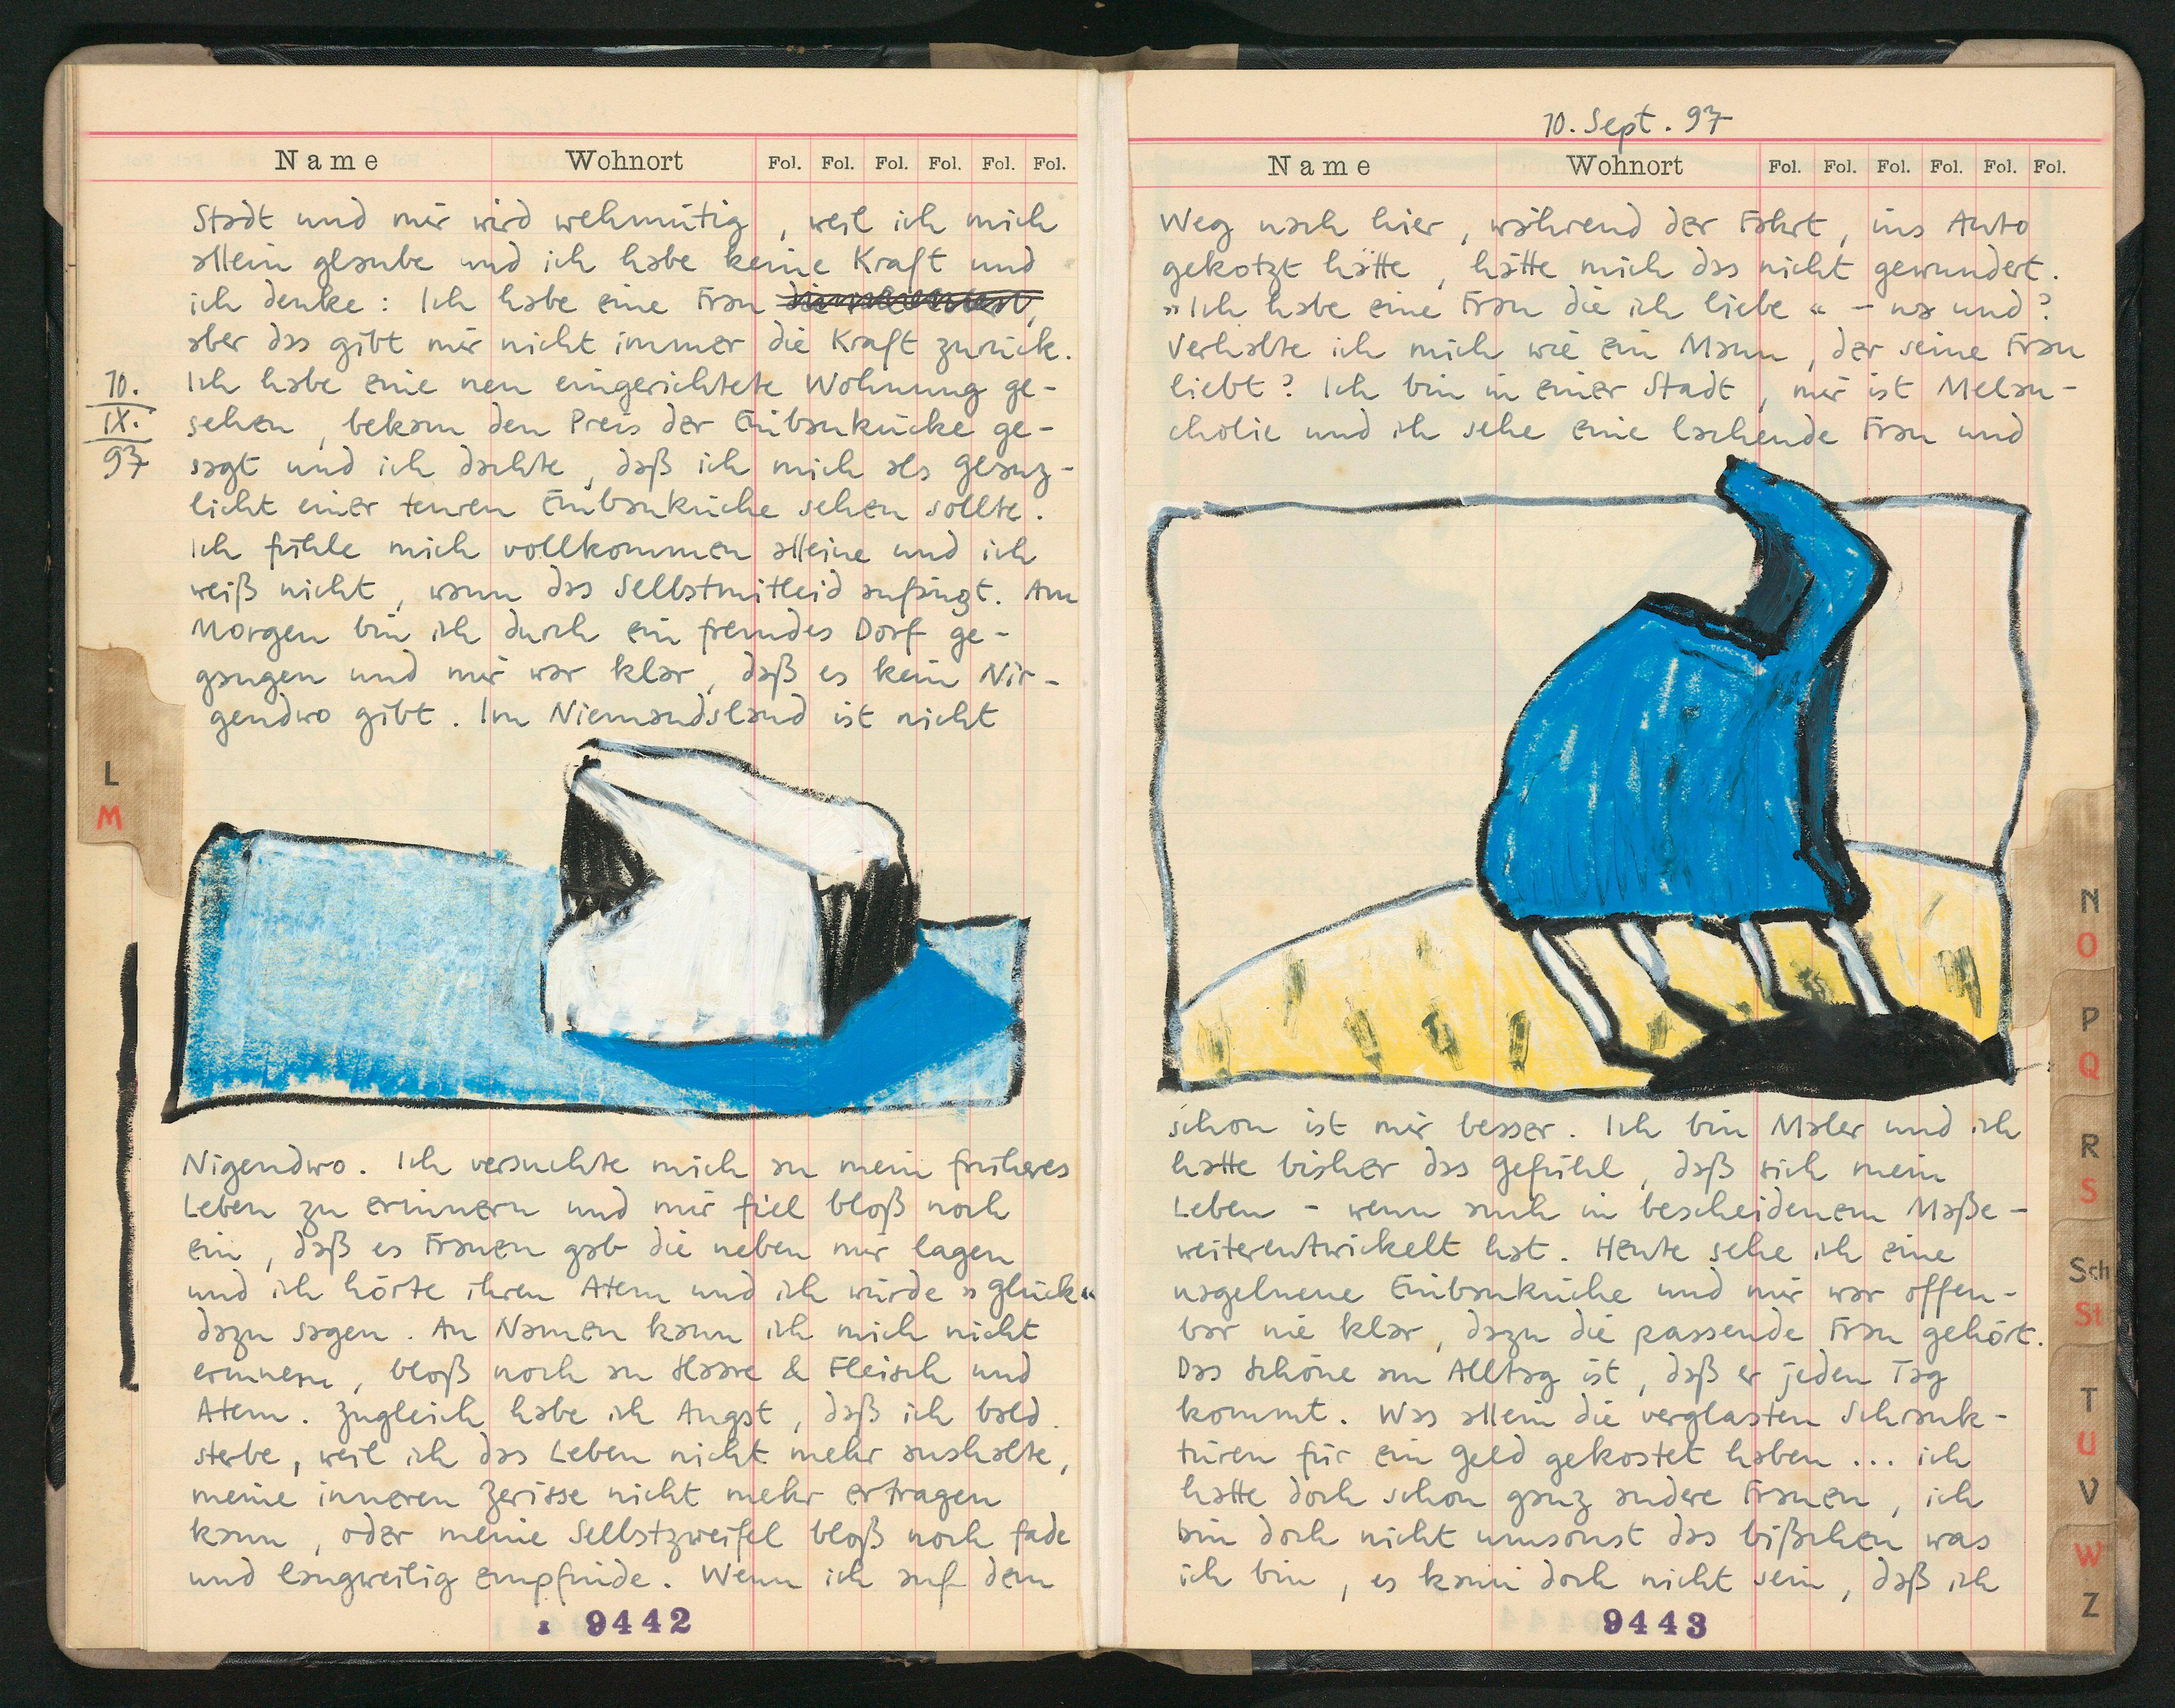 Name Wohnort Fol. Fol. Fol. Fol. Fol. Fol.
Stadt und mir wird wehmütig, weil ich mich
allein glaube und ich habe keine Kraft und
ich denke: Ich habe eine Frau
aber das gibt mir nicht immer die Kraft zurück.
10.
IX.
97
Ich habe eine neu eingerichtete Wohnung ge-
sehen, bekam den Preis der Einbaukücke ge-
sagt und ich dachte, daß ich mich als Geanz-
licht einer teuren Einbauküche sehen sollte.
Ich fühle mich vollkommen alleine und ich
weiß nicht, wann das Selbstmitleid anfängt. Am
Morgen bin ich durch ein fremdes Dorf ge-
gangen und mir war klar, daß es kein Nir-
gendwo gibt. Im Niemandsland ist nicht
L
M
Nigendwo. Ich versuchte mich an mein früheres
Leben zu erinnern und mir fiel bloß noch
ein, daß es Frauen gab die neben mir lagen
und ich hörte ihren Atem und ich würde »Glück«
dazu sagen. An Namen kann ich mich nicht
erinnern, bloß noch an Haare & Fleisch und
Atem. Zugleich habe ich Angst, daß ich bald
sterbe, weil ich das Leben nicht mehr aushalte,
meine inneren Zerisse nicht mehr ertragen
kann, oder meine Selbstzweifel bloß noch fade
und langweilig empfinde. Wenn ich auf dem
9442
10. Sept. 97
Name Wohnort Fol. Fol. Fol. Fol. Fol. Fol.
Weg nach hier, während der Fahrt, ins Auto
gekotzt hätte, hätte mich das nicht gewundert.
»Ich habe eine Frau die ich liebe« – na und?
Verhalte ich mich wie ein Mann, der seine Frau
liebt? Ich bin in einer Stadt, mir ist Melan-
cholie und ich sehe eine lachende Frau und
schon ist mir besser. Ich bin Maler und ich
hatte bisher das Gefühl, daß sich mein
Leben – wenn auch in bescheidenem Maße –
weiterentwickelt hat. Heute sehe ich eine
nagelneue Einbauküche und mir war offen-
bar nie klar, dazu die passende Frau gehört.
Das Schöne am Alltag ist, daß er jeden Tag
kommt. Was allein die verglasten Schrank-
türen für ein Geld gekostet haben ... ich
hatte doch schon ganz andere Frauen, ich
bin doch nicht umsonst das bißchen was
ich bin, es kann doch nicht sein, daß ich
9443
N
O
P
Q
R
S
Sch
St
T
U
V
W
Z